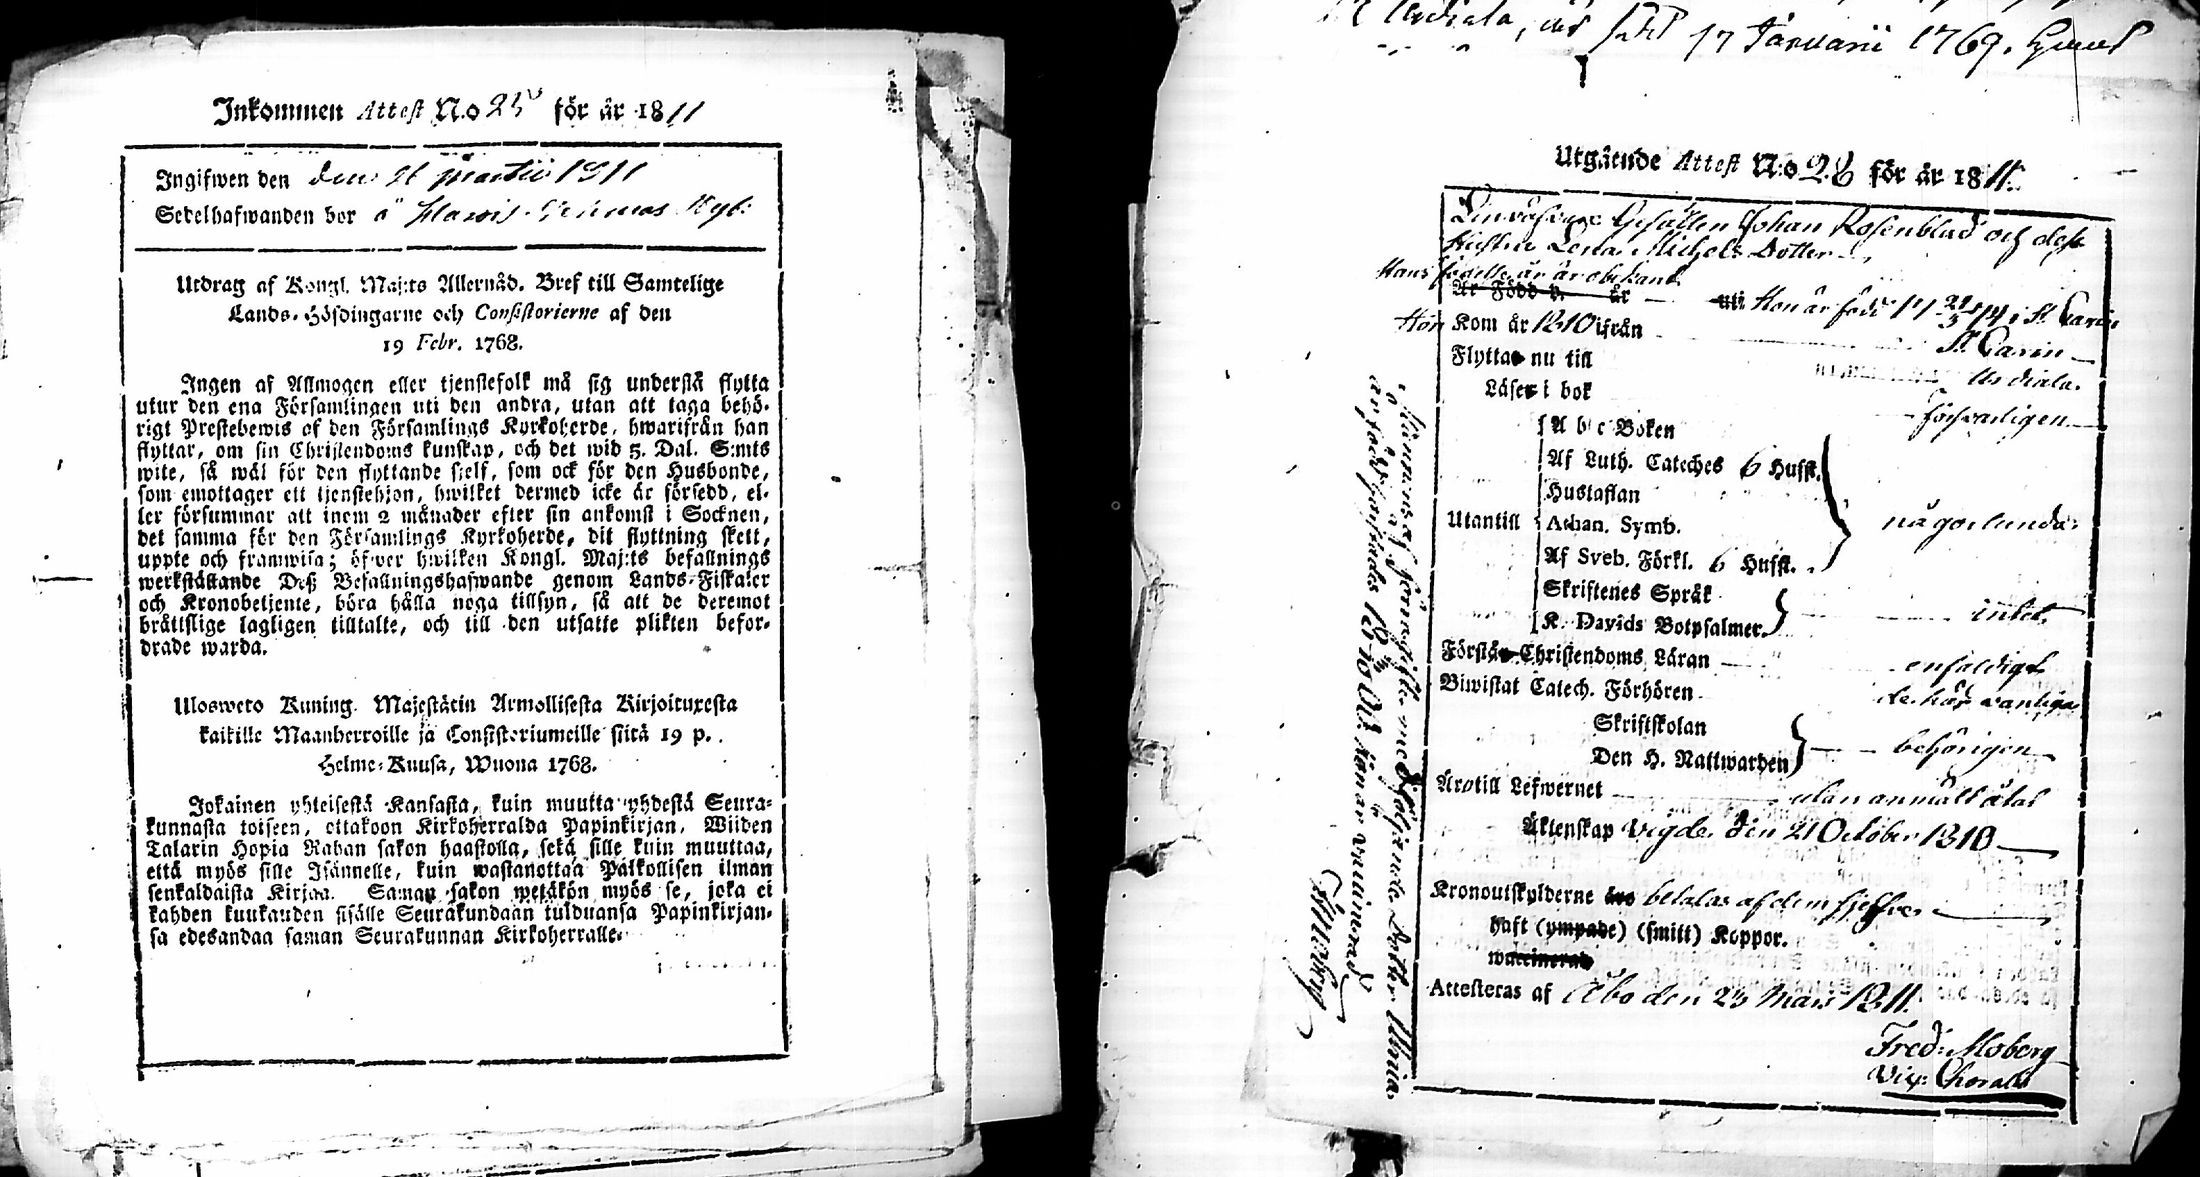 Inkommen Attest N:o 25 för år 1811
Ingifwen den den 26 Martii 1811
Sedelhafwanden bor å
Utdrag af Kongl. Maj:ts Allernåd. Bref till Samtelige
Lands-Höfdingarne och Consistorierne af den
19 Febr. 1768.
Ingen af Allmogen eller tjenstefolk må sig understå flytta
utur den ena Församlingen uti den andra, utan att taga behö-
rigt Prestebewis af den Församlings Kyrkoherde, hwarifrån han
flyttar, om sin Christendoms kunskap, och det wid 5. Dal. S:mts
wite, så wäl för den flyttande sjelf, som ock för den Husbonde,
som emottager ett tjenstehjon, hwilket dermed icke är försedd, el-
ler försummar att inom 2 månader efter sin ankomst i Socknen,
det samma för den Församlings Kyrkoherde, dit flyttning skett,
uppte och framwisa; öfwer hwilken Kongl. Maj:ts befallnings
werkställande Deß Befallningshafwande genom Lands-Fiskaler
och Kronobetjente, böra hålla noga tillsyn, så att de deremot
bråttslige lagligen tilltalte, och till den utsatte plikten befor-
drade warda.
Ulosweto Kuning. Majestätin Armollisesta Kirjoituxesta
kaikille Maanherroille ja Consistoriumeille siitä 19 p.
Helme-Kuusa, Wuona 1768.
Jokainen yhteisestä Kansasta, kuin muutta yhdestä Seura-
kunnasta toiseen, ottakoon Kirkoherralda Papinkirjan, Wiiden
Talarin Hopia Rahan sakon haastolla, sekä sille kuin muuttaa,
että myös sille Isännelle, kuin wastanottaa Palkollisen ilman
senkaldaista Kirjaa. Saman sakon wetäkön myös se, joka ei
kahden kuukauden sisälle Seurakundaan tulduansa Papinkirjan-
sa edesandaa saman Seurakunnan Kirkoherralle.
17 Januarii 1769.
Utgående Attest N:o 28 för år 1811.
Gesällen Johan Rosenblad och dess
Hustru Lena Michels Dotter
Hans födelse år är obekant
Är Född d. år uti Hon är född 17 21/3 74 i St Carin
Hon Kom år 1810 ifrån St Carin
Flyttar nu till Uskiala.
Läser i bok försvarligen
A b c Boken
Af Luth. Cateches 6 Hufst.
Hustaflan
Utantill Athan. Symb. någorlunda
Af Sveb. Förkl. 6 Hufst.
Skriftenes Språk
K. Davids Botpsalmer. intet
Förstår Christendoms Läran enfaldigt
Biwistat Catech. Förhören de här vanliga
Skriftskolan
Den H. Nattwarden behörigen
Är till Lefwernet utan anmält åtal
Äktenskap vigde den 21 October 1810
Kronoutskylderne betalas af dem sjelfve
Haft (ympade) (smitt) Koppor.
waccinerad
Attesteras af Åbo den 23 Mars 1811.
Fred: Moberg